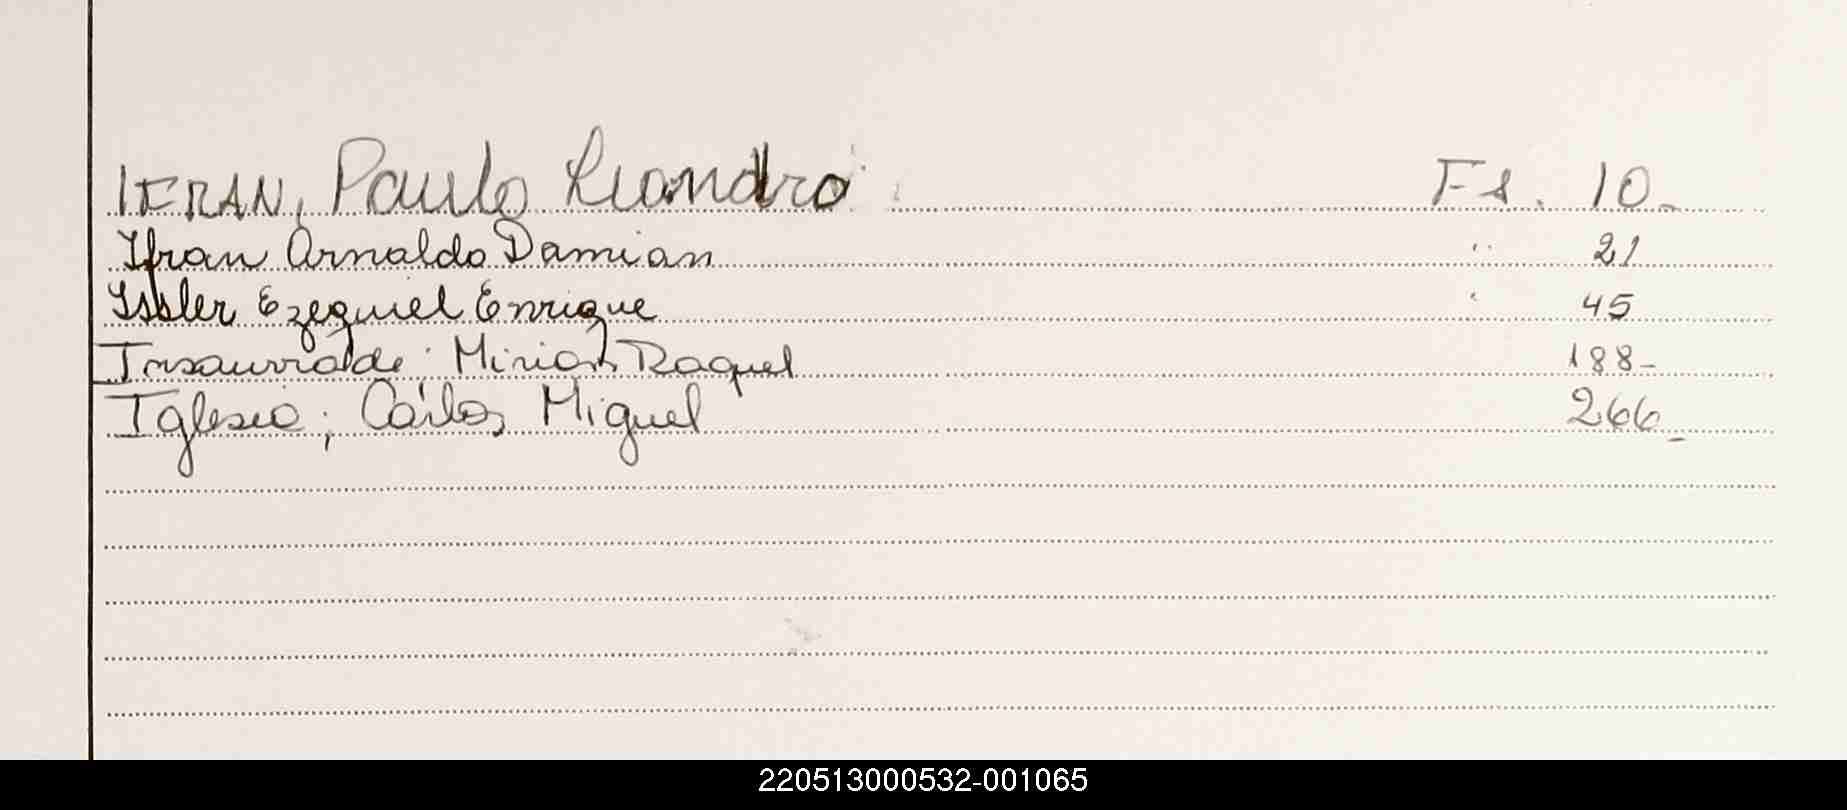 IFRAN, Paulo Leandro Fs. 10_
Ifran Arnaldo Damian " 21
Issler Ezequiel Enrique " 45
Insaurralde; Mirian Raquel 188-
Iglesia; Carlos Miguel 266_
220513000532-001065